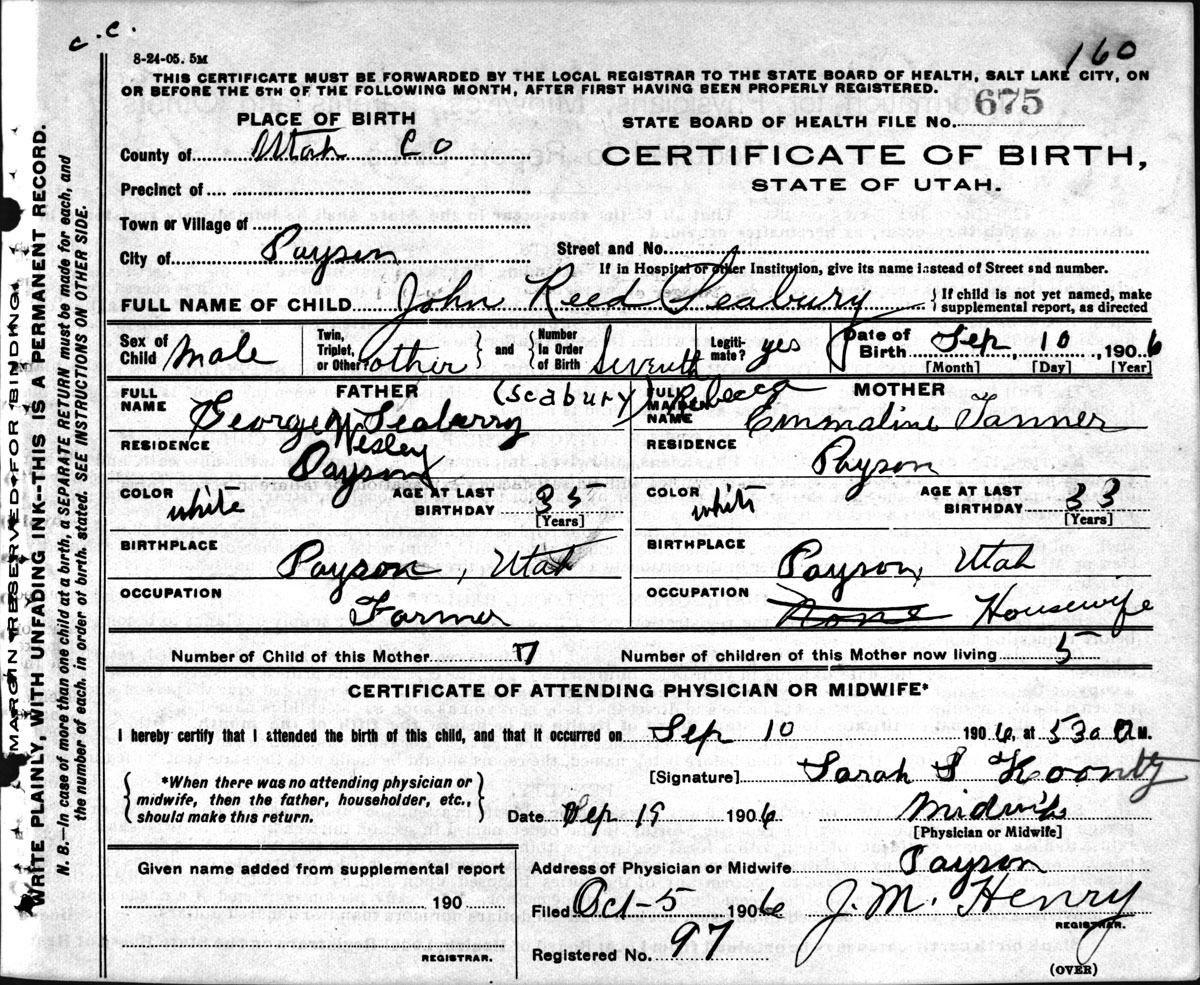 c.c.
160
8-24-05. 5M
THIS CERTIFICATE MUST BE FORWARDED BY THE LOCAL REGISTRAR TO THE STATE BOARD OF HEALTH, SALT LAKE CITY, ON
OR BEFORE THE 5TH OF THE FOLLOWING MONTH, AFTER FIRST HAVING BEEN PROPERLY REGISTERED.
PLACE OF BIRTH
STATE BOARD OF HEALTH FILE NO. 675
County of Utah Co
CERTIFICATE OF BIRTH,
STATE OF UTAH.
Precinct of
Town or Village of
City of Payson
Street and No.
If in Hospital or other Institution, give its name instead of Street and number.
FULL NAME OF CHILD John Reed Seabury
{ If child is not yet named, make
supplemental report, as directed
Sex of Child Male
Twin, Triplet, or Other? other } and { Number In Order of Birth Seventh
Legiti-mate? yes
Date of Birth Sep 10, 1906
[Month] [Day] [Year]
FATHER
FULL NAME George W Seaberry (Seabury)
Wesley
RESIDENCE Payson
COLOR white
AGE AT LAST BIRTHDAY 35
[Years]
BIRTHPLACE Payson, Utah
OCCUPATION Farmer
MOTHER
FULL MAIDEN NAME Rebecca Emmaline Tanner
RESIDENCE Payson
COLOR white
AGE AT LAST BIRTHDAY 33
[Years]
BIRTHPLACE Payson, Utah
OCCUPATION None Housewife
Number of Child of this Mother 7
Number of children of this Mother now living 5
CERTIFICATE OF ATTENDING PHYSICIAN OR MIDWIFE*
I hereby certify that I attended the birth of this child, and that it occurred on Sep 10 1906, at 530 A M.
{ *When there was no attending physician or
midwife, then the father, householder, etc.,
should make this return. }
[Signature] Sarah S Koontz
Date Sep 19 1906
Midwife
[Physician or Midwife]
Given name added from supplemental report
190
REGISTRAR.
Address of Physician or Midwife Payson
Filed Oct-5 1906 J.M. Henry
REGISTRAR.
Registered No. 97
(OVER)
MARGIN RESERVED FOR BINDING
WRITE PLAINLY, WITH UNFADING INK--THIS IS A PERMANENT RECORD.
N. B.—In case of more than one child at a birth, a SEPARATE RETURN must be made for each, and
the number of each, in order of birth, stated. SEE INSTRUCTIONS ON OTHER SIDE.